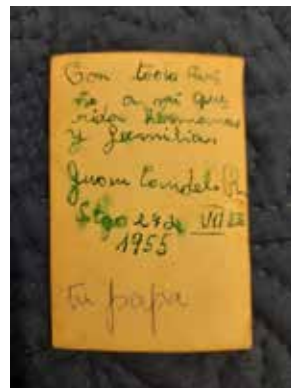 Con todo cari
ño a mi que
rida hermana
y familia
Juan Candela R
Stgo
1955
tu papa